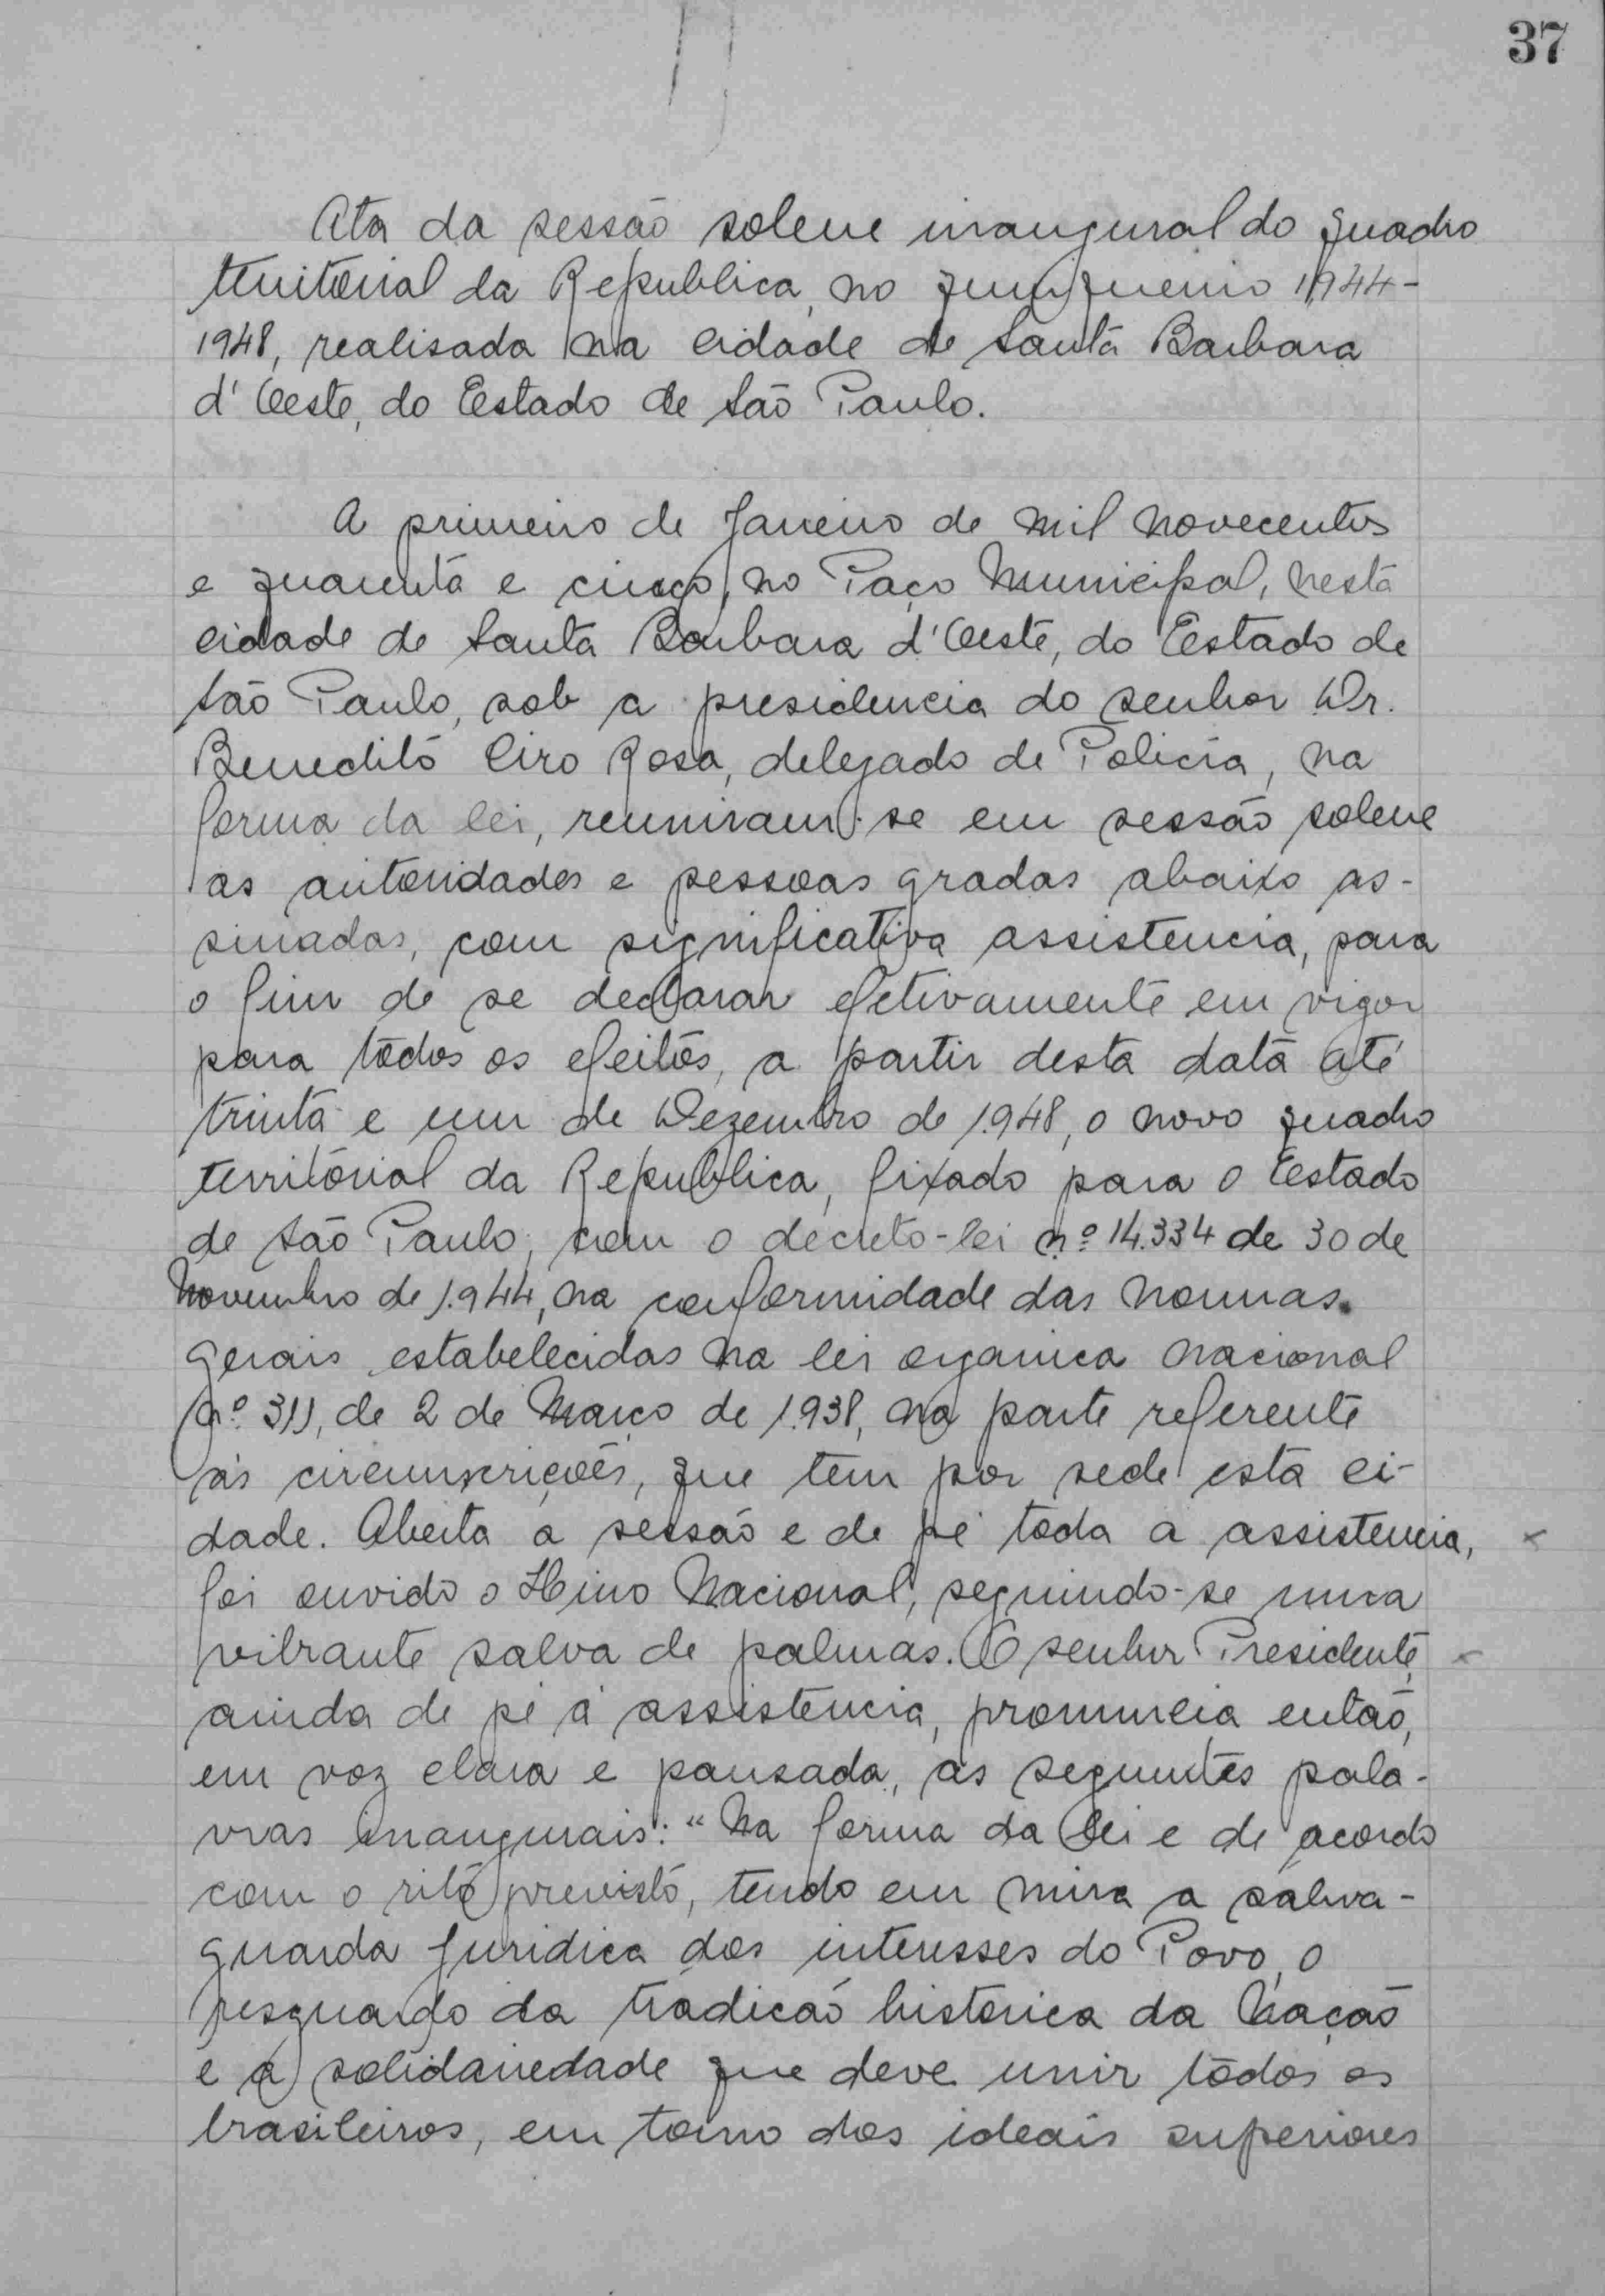 37
Ata da sessão solene inaugural do quadro
territorial da Republica, no quinquenio 1944-
1948, realisada na cidade de Santa Barbara
d'Oeste, do Estado de São Paulo.
A primeiro de Janeiro de mil novecentos
e quarenta e cinco, no Paço Municipal, nesta
cidade de Santa Barbara d'Oeste, do Estado de
São Paulo, sob a presidencia do senhor Dr.
Benedito Ciro Rosa, delegado de Policia, na
forma da lei, reuniram-se em sessão solene
as autoridades e pessoas gradas abaixo as-
sinadas, com significativa assistencia, para
o fim de se declarar efetivamente em vigor
para todos os efeitos, a partir desta data até
trinta e um de Dezembro de 1.948, o novo quadro
territorial da Republica, fixado para o Estado
de São Paulo, com o decreto-lei nº 14.334 de 30 de
Novembro de 1.944, na conformidade das normas
gerais estabelecidas na lei organica nacional
nº 311, de 2 de Março de 1.938, na parte referente
ás circunscrições, que tem por sede esta ci-
dade. Aberta a sessão e de pé toda a assistencia,
foi ouvido o Hino Nacional, seguindo-se uma
vibrante salva de palmas. O senhor Presidente,
ainda de pé a assistencia, pronuncia então,
em voz clara e pausada, as seguintes pala-
vras inaugurais: "Na forma da lei e de acordo
com o rito previsto, tendo em mira a salva-
guarda juridica dos interesses do Povo, o
resguardo da tradicão historica da Nação
e a solidariedade que deve unir todos os
brasileiros, em torno dos ideais superiores